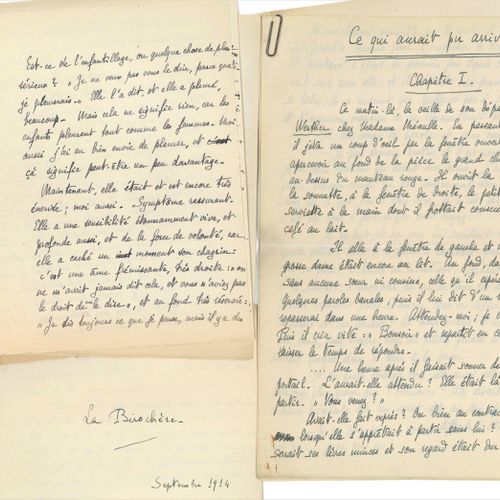 Est-ce de l'enfantillage, ou quelque chose de plus
sérieux? "Je ne veux pas vous le dire, parce que
je pleurerais". Elle l'a dit et elle a pleuré,
beaucoup. Mais cela ne signifie rien, car les
enfants pleurent tout comme les femmes. Moi
aussi j'ai eu bien envie de pleurer, et
çà signifie peut-être un peu davantage.
Maintenant, elle était et est encore très
énervée; moi aussi. Symptôme rassurant.
Elle a une sensibilité étonnamment vive, et
profonde aussi, et de la force de volonté, car
elle a caché un moment son chagrin:
c'est une âme frémissante, très droite: "on
ne m'avait jamais dit cela, et vous n'aviez pas
le droit de le dire", et au fond très réservée:
"Je dis toujours ce que je pense, mais il y a des
La Birochère
Septembre 1914
Ce qui aurait pu arriv
Chapitre I.
Ce matin-là, la veille de son dépa
Werther chez Madame En passan
il jeta un coup d'oeil par la fenêtre ouver
apercevoir au fond de la pièce le grand cha
au-dessus du manteau rouge. Il ouvrit la
la sonnette, à la fenêtre de droite, la petit
serviette à la main dont il frottait conscie
café au lait.
Il alla à la fenêtre de gauche et v
grosse dame était encore au lit. Au fond, da
sans aucune soeur ni cousine, celle qu'il espér
quelques paroles banales, puis il lui dit d'un
repasserai dans une heure. Attendez-moi; je v
Puis il cria vite: "Bonsoir" et repartit en co
laisser le temps de répondre.
.... Une heure après il faisait sonner de
portail. L'aurait-elle attendu? Elle était là
partir. "Vous venez?"
Avait-elle fait exprès? Ou bien au contrai
lorsqu'elle s'apprêtait à partir sans lui?
serait ses lèvres minces et son regard était du